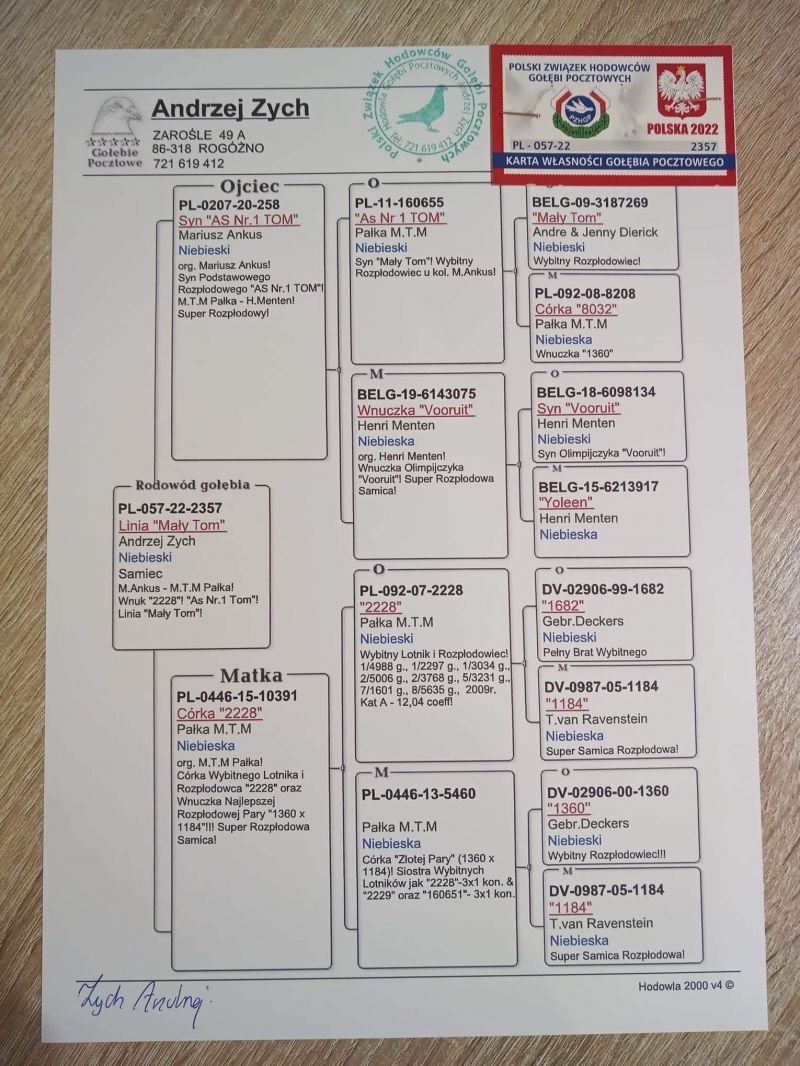 Andrzej Zych
ZAROŚLE 49 A
86-318 ROGÓŹNO
721 619 412
Gołębie
Pocztowe
Polski Związek Hodowców Gołębi Pocztowych
Hodowla Gołębi Pocztowych Andrzej Zych
Tel: 721 619 412
POLSKI ZWIĄZEK HODOWCÓW
GOŁĘBI POCZTOWYCH
PZHGP
POLSKA 2022
PL - 057-22 2357
KARTA WŁASNOŚCI GOŁĘBIA POCZTOWEGO
Rodowód gołębia
PL-057-22-2357
Linia "Mały Tom"
Andrzej Zych
Niebieski
Samiec
M.Ankus - M.T.M Pałka!
Wnuk "2228"! "As Nr.1 Tom"!
Linia "Mały Tom"!
Ojciec
PL-0207-20-258
Syn "AS Nr.1 TOM"
Mariusz Ankus
Niebieski
org. Mariusz Ankus!
Syn Podstawowego
Rozpłodowego "AS Nr.1 TOM"!
M.T.M Pałka - H.Menten!
Super Rozpłodowy!
Matka
PL-0446-15-10391
Córka "2228"
Pałka M.T.M
Niebieska
org. M.T.M Pałka!
Córka Wybitnego Lotnika i
Rozpłodowca "2228" oraz
Wnuczka Najlepszej
Rozpłodowej Pary "1360 x
1184"!!! Super Rozpłodowa
Samica!
O
PL-11-160655
"As Nr 1 TOM"
Pałka M.T.M
Niebieski
Syn "Mały Tom"! Wybitny
Rozpłodowiec u kol. M.Ankus!
M
BELG-19-6143075
Wnuczka "Vooruit"
Henri Menten
Niebieska
org. Henri Menten!
Wnuczka Olimpijczyka
"Vooruit"! Super Rozpłodowa
Samica!
O
PL-092-07-2228
"2228"
Pałka M.T.M
Niebieski
Wybitny Lotnik i Rozpłodowiec!
1/4988 g., 1/2297 g., 1/3034 g.,
2/5006 g., 2/3768 g., 5/3231 g.,
7/1601 g., 8/5635 g., 2009r.
Kat A - 12,04 coeff!
M
PL-0446-13-5460
Pałka M.T.M
Niebieska
Córka "Złotej Pary" (1360 x
1184)! Siostra Wybitnych
Lotników jak "2228"-3x1 kon. &
"2229" oraz "160651"- 3x1 kon.
BELG-09-3187269
"Mały Tom"
Andre & Jenny Dierick
Niebieski
Wybitny Rozpłodowiec!
M
PL-092-08-8208
Córka "8032"
Pałka M.T.M
Niebieska
Wnuczka "1360"
O
BELG-18-6098134
Syn "Vooruit"
Henri Menten
Niebieski
Syn Olimpijczyka "Vooruit"!
M
BELG-15-6213917
"Yoleen"
Henri Menten
Niebieska
O
DV-02906-99-1682
"1682"
Gebr.Deckers
Niebieski
Pełny Brat Wybitnego
M
DV-0987-05-1184
"1184"
T.van Ravenstein
Niebieska
Super Samica Rozpłodowa!
O
DV-02906-00-1360
"1360"
Gebr.Deckers
Niebieski
Wybitny Rozpłodowiec!!!
M
DV-0987-05-1184
"1184"
T.van Ravenstein
Niebieska
Super Samica Rozpłodowa!
Zych Andrzej
Hodowla 2000 v4 ©